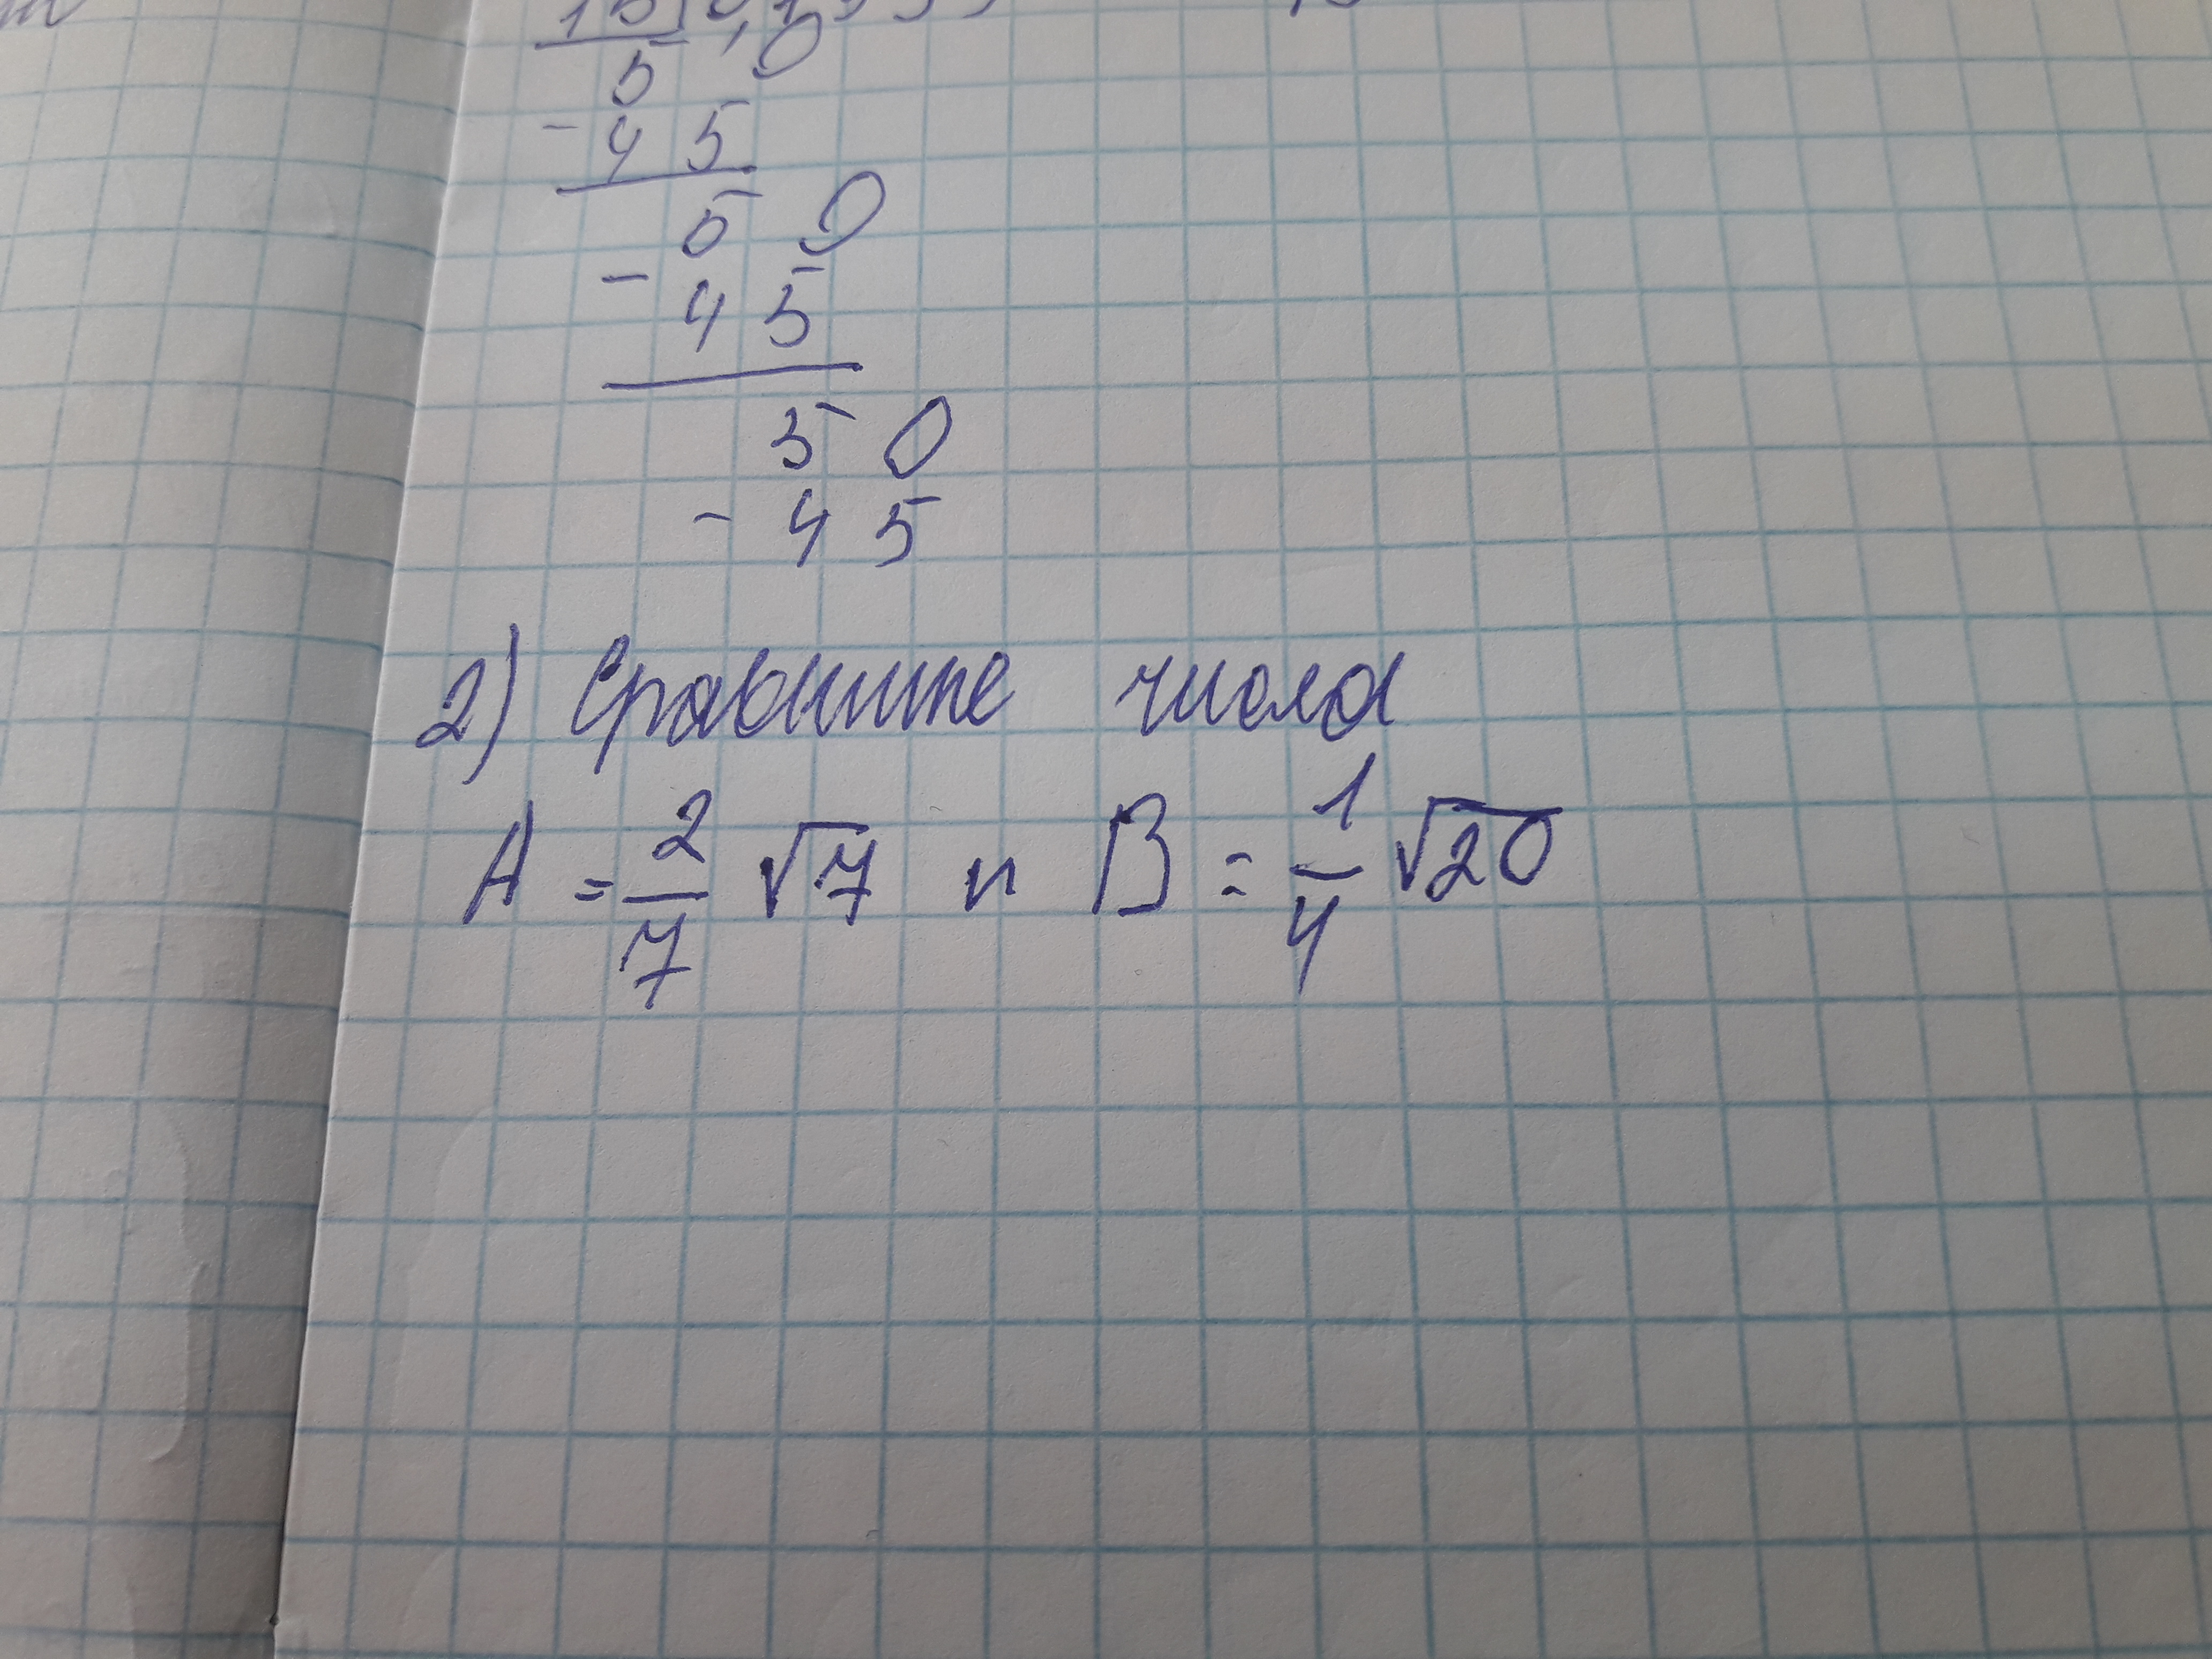 5 0
- 4 5
5 0
- 4 5
5 0
- 4 5
2) Сравните числа
A = 2/7 √7 и B = 1/4 √20